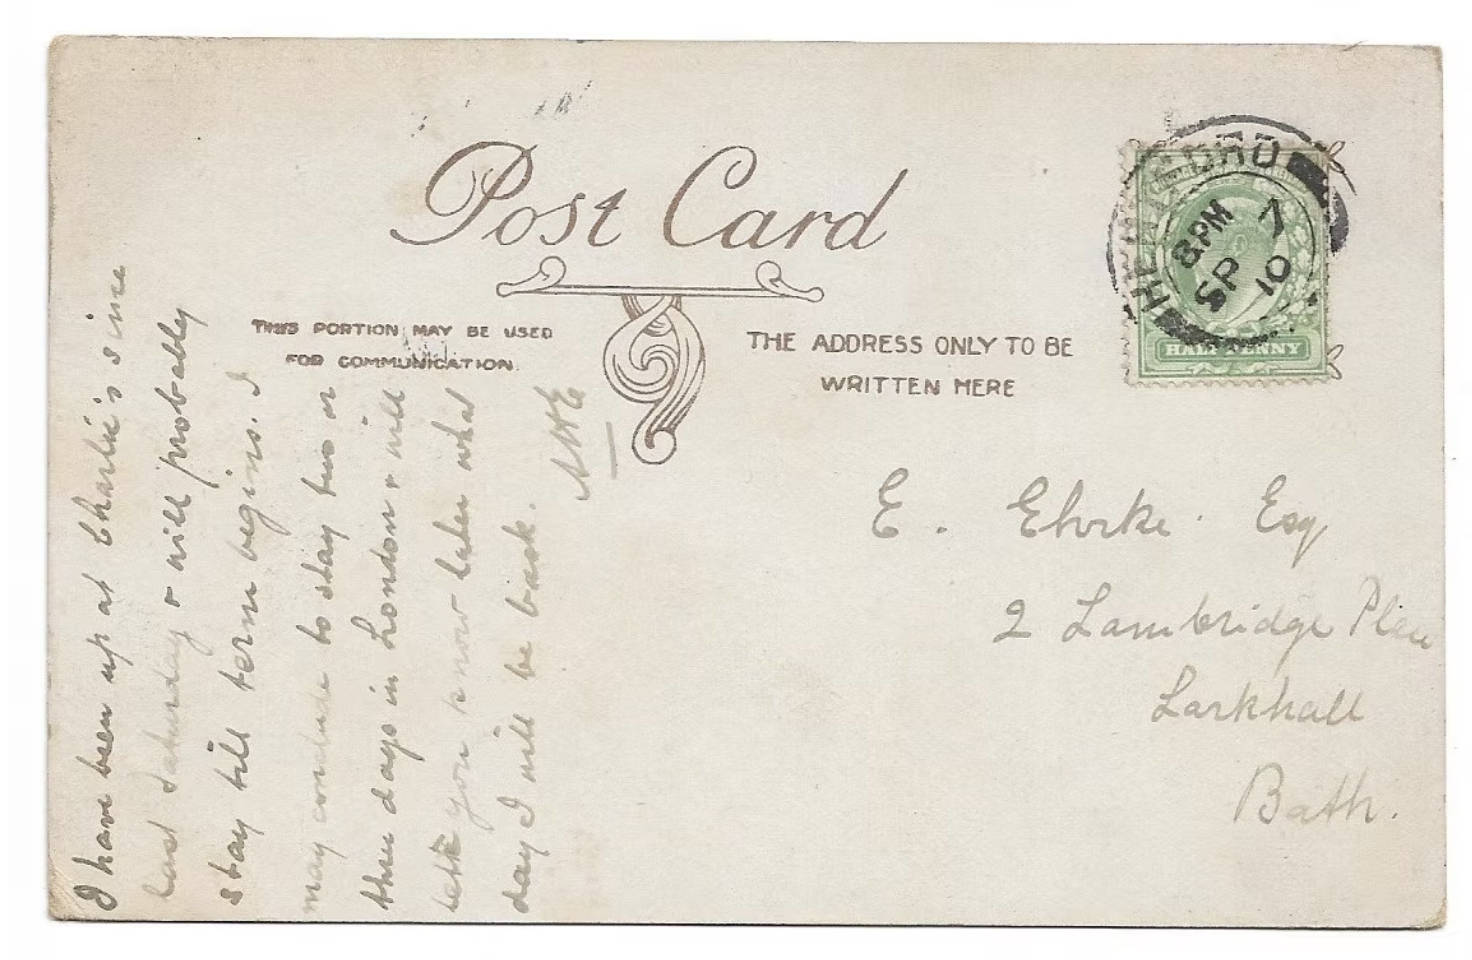 Post Card
THIS PORTION MAY BE USED
FOR COMMUNICATION
THE ADDRESS ONLY TO BE
WRITTEN HERE
HALF PENNY
8 PM
7
SP
10
I have been up at Charlie's since
last Saturday & will probably
stay till term begins. I
may conclude to stay two or
three days in London & will
let you know later what
day I will be back.
E. Esq
2 Lambridge Place
Larkhall
Bath.